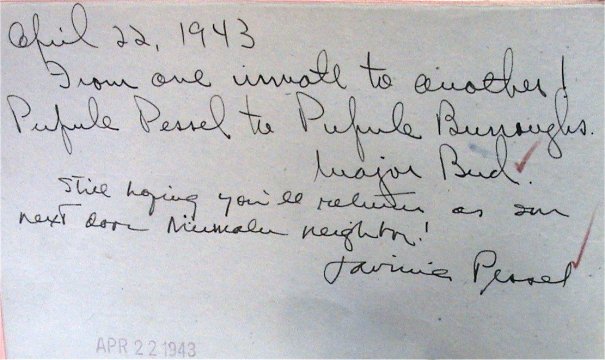 April 22, 1943
From one inmate to another!
Pupule Pessel to Pupule Burroughs.
Major Bud.
Still hoping you'll return as our
next door Niumalu neighbor!
Lavinia Pessel
APR 22 1943